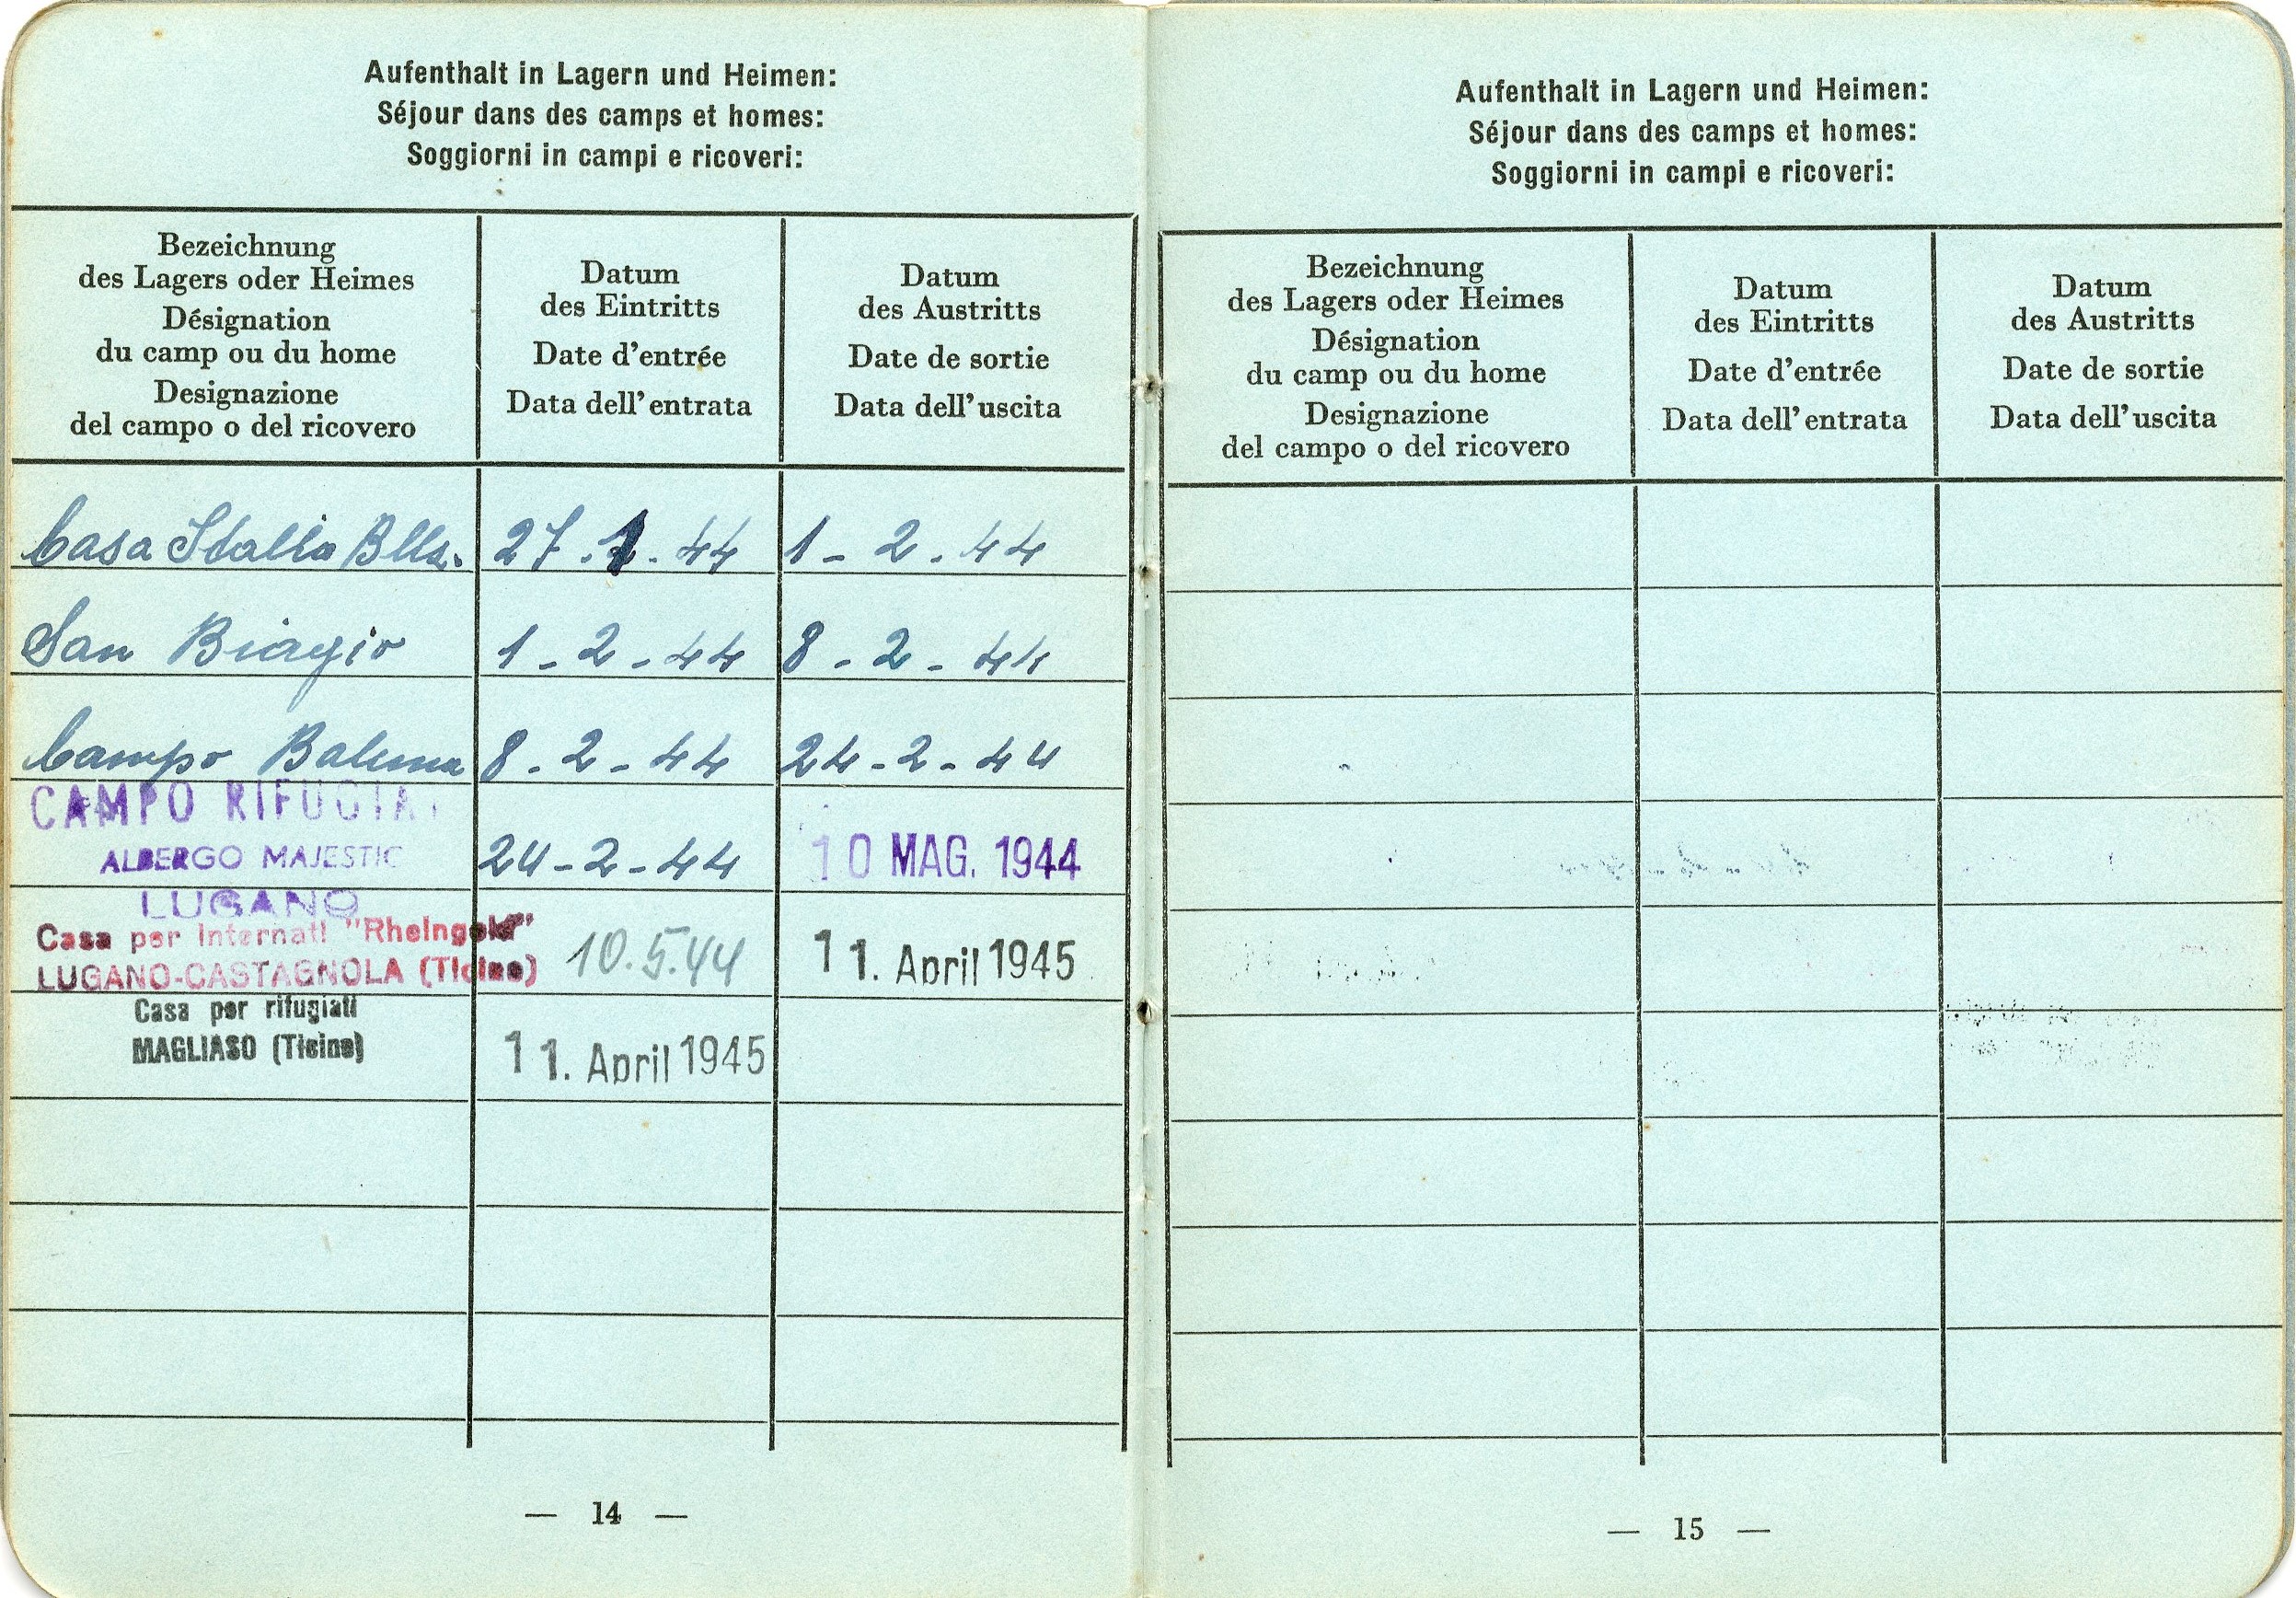 Aufenthalt in Lagern und Heimen:
Séjour dans des camps et homes:
Soggiorni in campi e ricoveri:
Bezeichnung
des Lagers oder Heimes
Désignation
du camp ou du home
Designazione
del campo o del ricovero
Datum
des Eintritts
Date d'entrée
Data dell'entrata
Datum
des Austritts
Date de sortie
Data dell'uscita
Casa Italia Bllz. 27.1.44 1-2.44
San Biagio 1-2-44 8-2-44
Campo Balerna 8-2-44 24-2-44
CAMPO RIFUGIAT
ALBERGO MAJESTIC 24-2-44 10 MAG. 1944
LUGANO
Casa per internati "Rheingold"
LUGANO-CASTAGNOLA (Ticino) 10.5.44 11. April 1945
Casa per rifugiati
MAGLIASO (Ticino) 11. April 1945
— 14 —
Aufenthalt in Lagern und Heimen:
Séjour dans des camps et homes:
Soggiorni in campi e ricoveri:
Bezeichnung
des Lagers oder Heimes
Désignation
du camp ou du home
Designazione
del campo o del ricovero
Datum
des Eintritts
Date d'entrée
Data dell'entrata
Datum
des Austritts
Date de sortie
Data dell'uscita
— 15 —